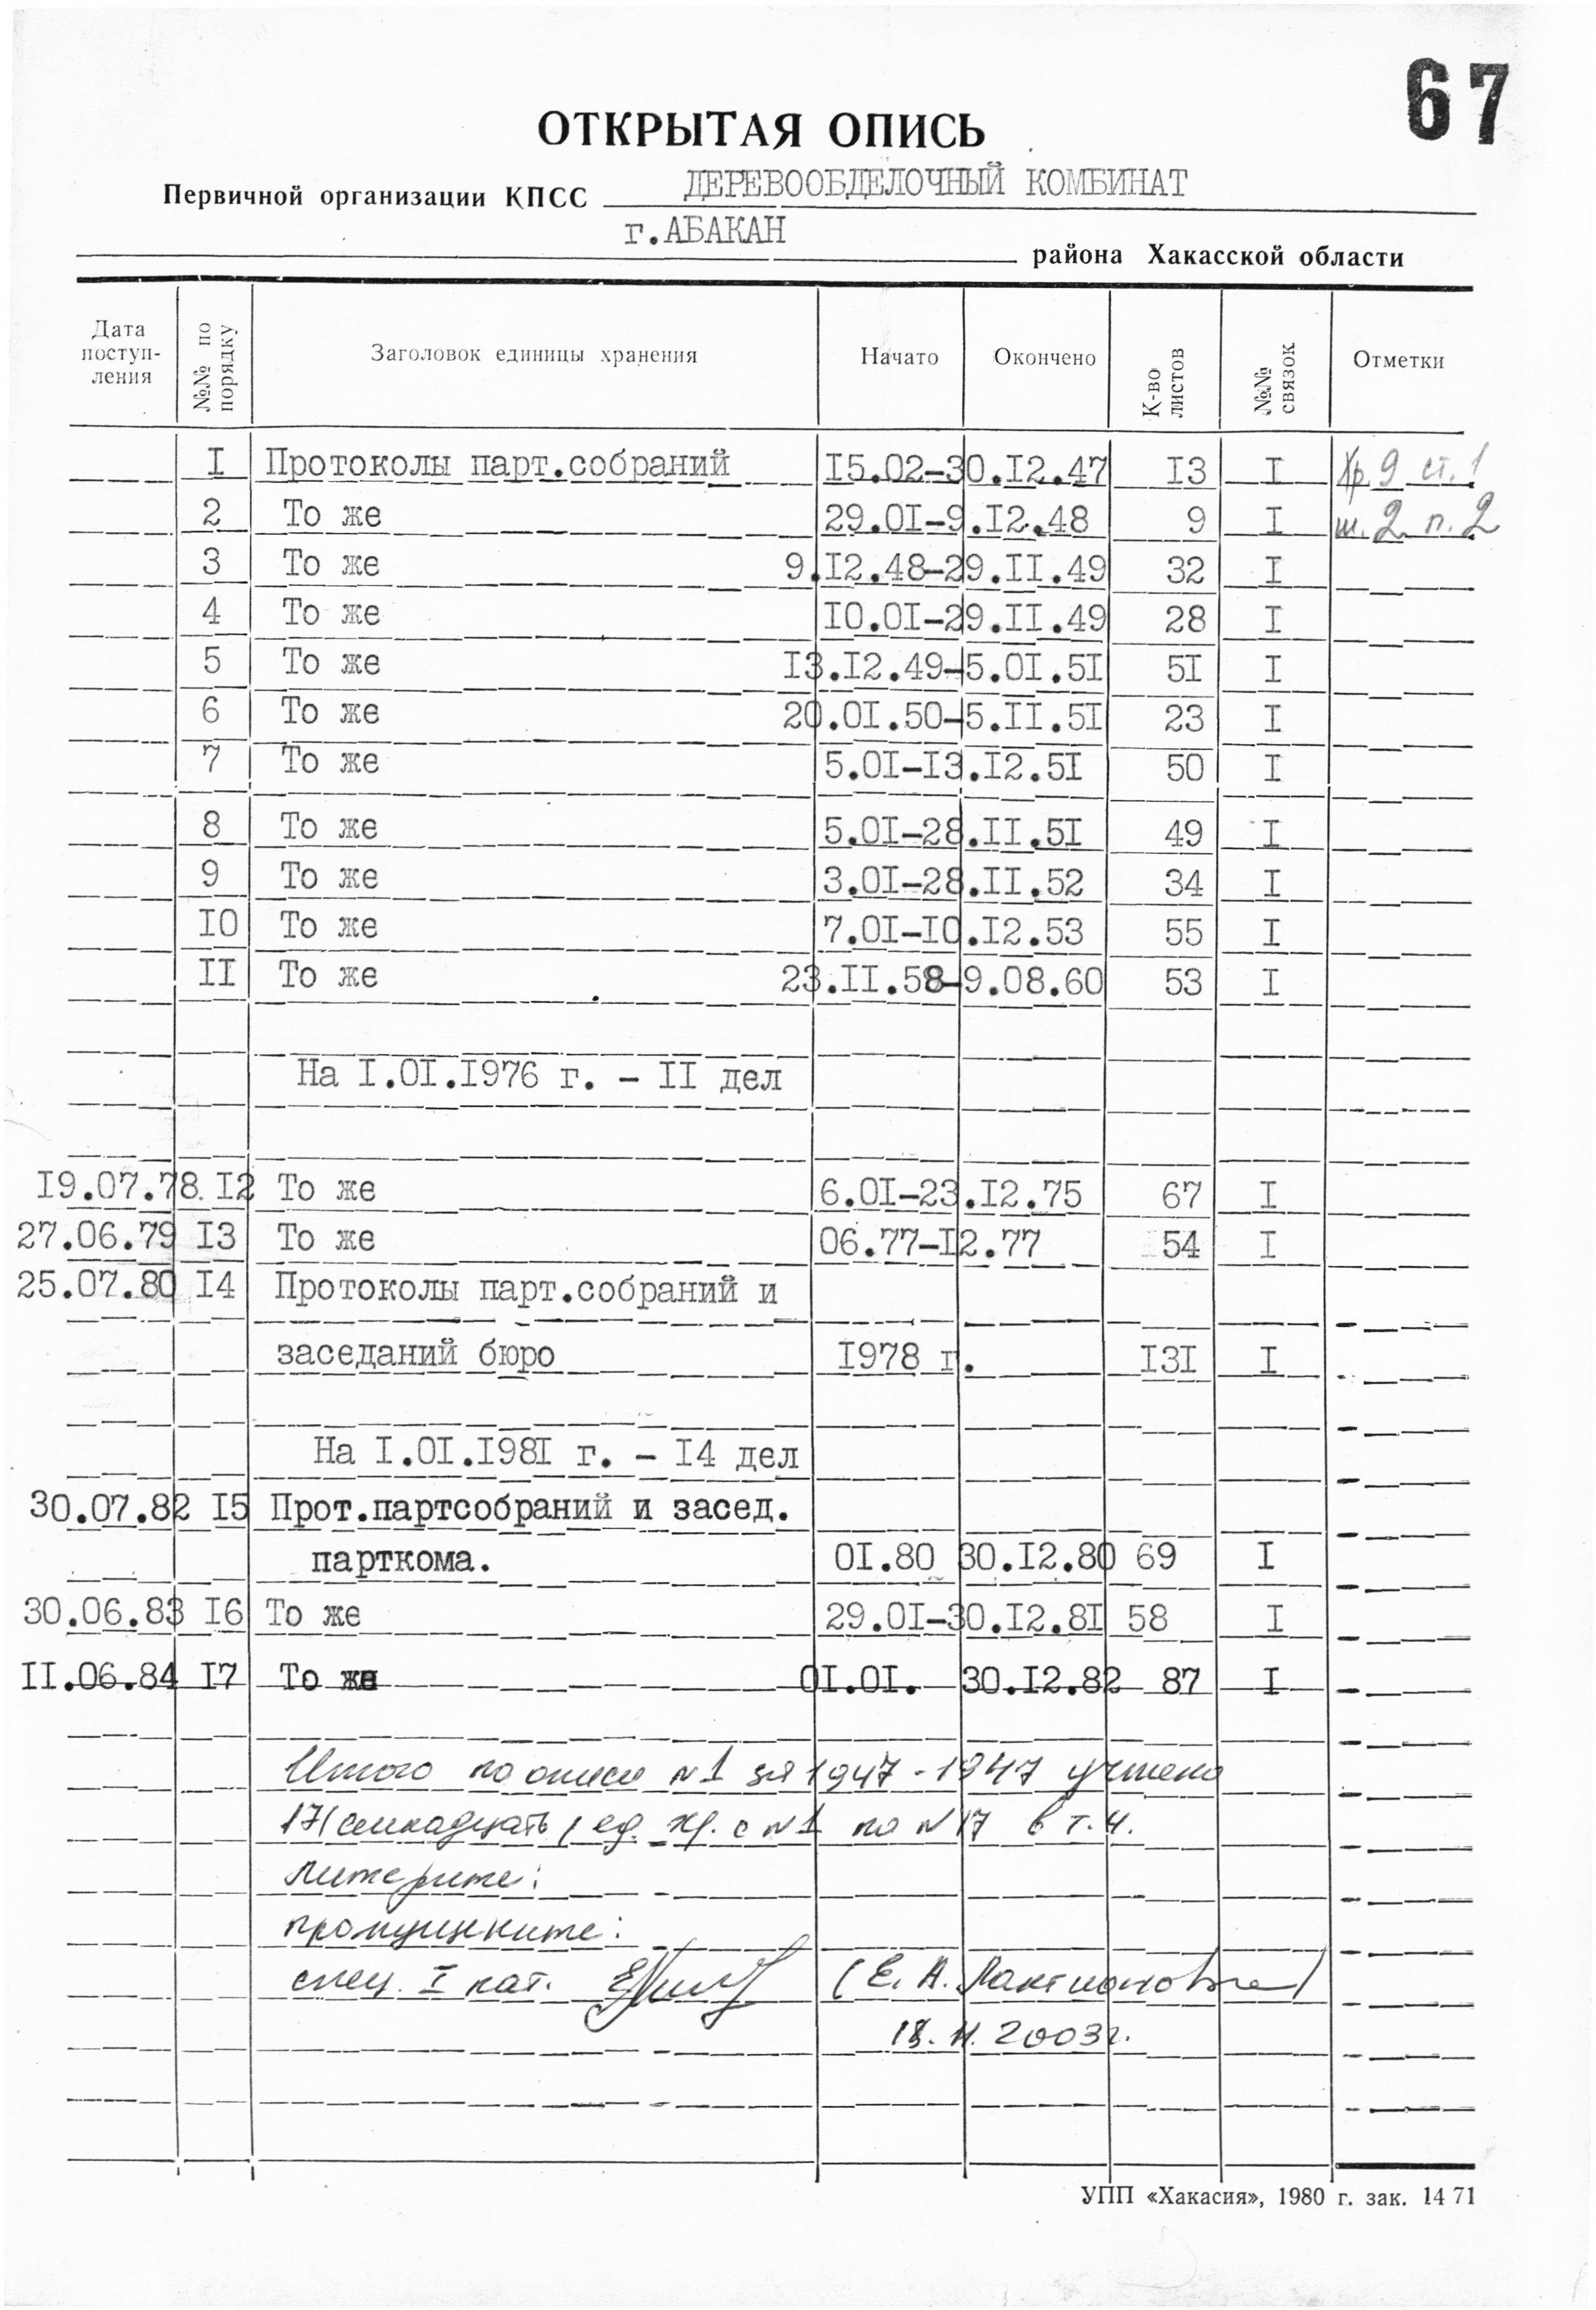 67
ОТКРЫТАЯ ОПИСЬ
Первичной организации КПСС ДЕРЕВООБДЕЛОЧНЫЙ КОМБИНАТ
г.АБАКАН района Хакасской области
Дата поступ-ления №№ по порядку Заголовок единицы хранения Начато Окончено К-во листов №№ связок Отметки
I Протоколы парт.собраний I5.02-30.I2.47 I3 I Хр. 9 ст. 1
2 То же 29.0I-9.I2.48 9 I ш. 2 п. 2
3 То же 9.I2.48-29.II.49 32 I
4 То же I0.0I-29.II.49 28 I
5 То же I3.I2.49-5.0I.5I 5I I
6 То же 20.0I.50-5.II.5I 23 I
7 То же 5.0I-I3.I2.5I 50 I
8 То же 5.0I-28.II.5I 49 I
9 То же 3.0I-28.II.52 34 I
I0 То же 7.0I-I0.I2.53 55 I
II То же 23.II.58-9.08.60 53 I
На I.0I.I976 г. - II дел
I9.07.78. I2 То же 6.0I-23.I2.75 67 I
27.06.79 I3 То же 06.77-I2.77 54 I
25.07.80 I4 Протоколы парт.собраний и
заседаний бюро I978 г. I3I I
На I.0I.I98I г. - I4 дел
30.07.82 I5 Прот.партсобраний и засед.
парткома. 0I.80 30.I2.80 69 I
30.06.83 I6 То же 29.0I-30.I2.8I 58 I
II.06.84 I7 То же 0I.0I. 30.I2.82 87 I
Итого по описи №1 за 1947-1947 учтено
17 (семнадцать) ед. хр. с №1 по №17 в т.ч.
литерные:
пропущенные:
спец. I кат. (Е. А. Лактионова)
18. 11. 2003г.
УПП «Хакасия», 1980 г. зак. 1471